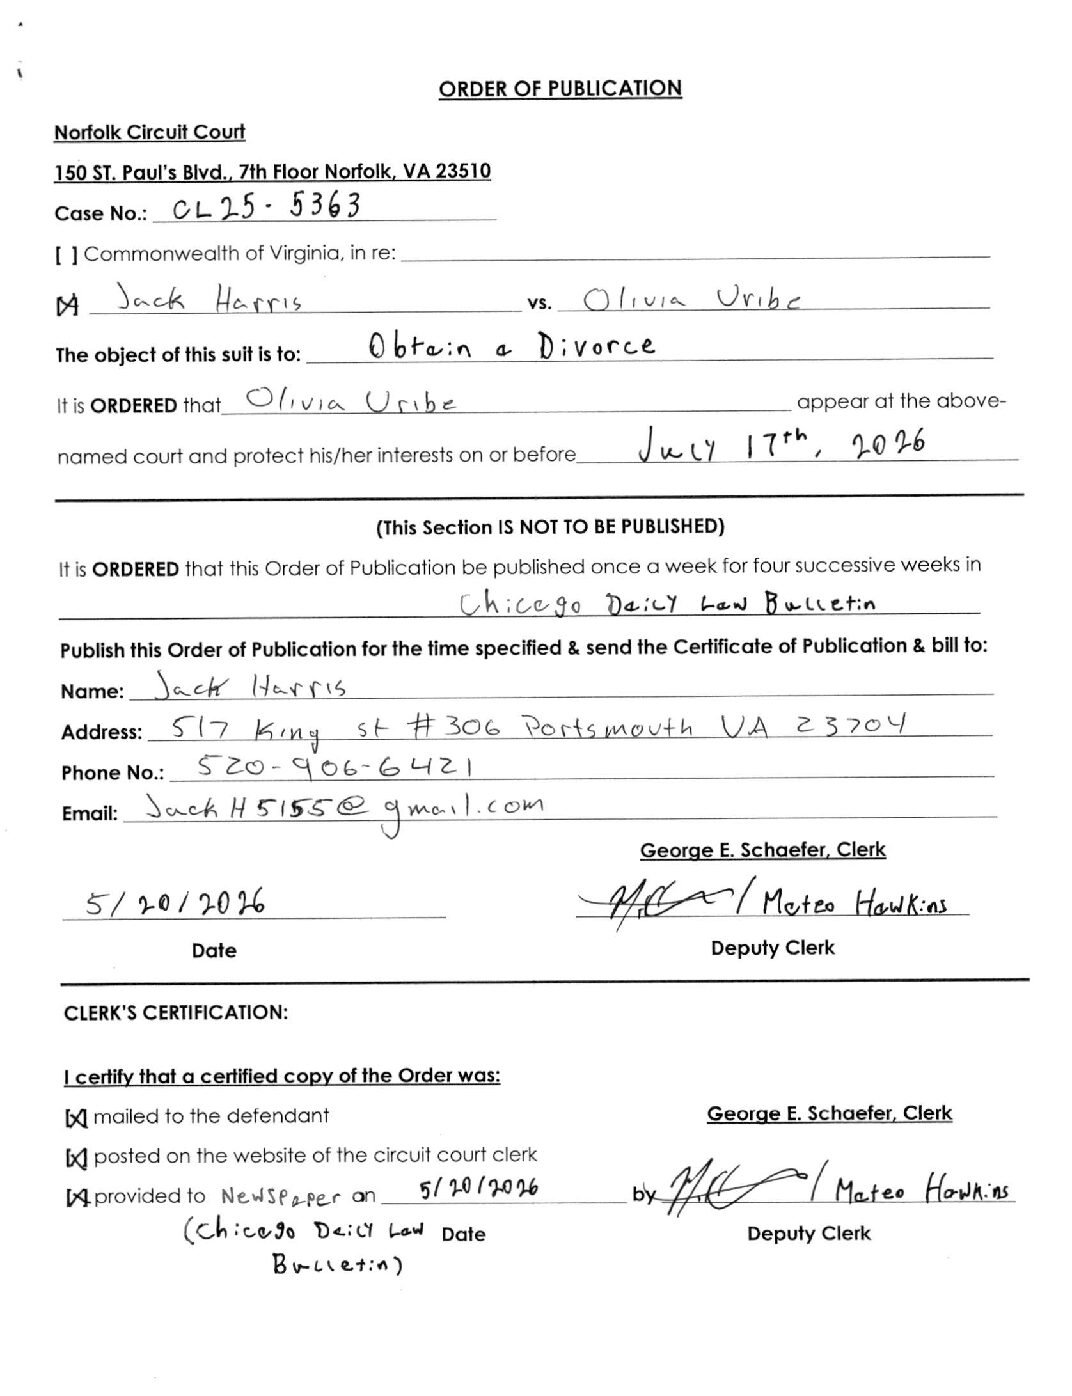 ORDER OF PUBLICATION
Norfolk Circuit Court
150 ST. Paul's Blvd., 7th Floor Norfolk, VA 23510
Case No.: CL25-5363
[ ] Commonwealth of Virginia, in re:
[X] Jack Harris vs. Olivia Uribe
The object of this suit is to: Obtain a Divorce
It is ORDERED that Olivia Uribe appear at the above-
named court and protect his/her interests on or before July 17th, 2026
(This Section IS NOT TO BE PUBLISHED)
It is ORDERED that this Order of Publication be published once a week for four successive weeks in
Chicago Daily Law Bulletin
Publish this Order of Publication for the time specified & send the Certificate of Publication & bill to:
Name: Jack Harris
Address: 517 King st # 306 Portsmouth VA 23704
Phone No.: 520-906-6421
Email: JackH5155@gmail.com
George E. Schaefer, Clerk
5/20/2026 / Mateo Hawkins
Date Deputy Clerk
CLERK'S CERTIFICATION:
I certify that a certified copy of the Order was:
[X] mailed to the defendant George E. Schaefer, Clerk
[X] posted on the website of the circuit court clerk
[X] provided to Newspaper on 5/20/2026 by / Mateo Hawkins
(Chicago Daily Law Date Deputy Clerk
Bulletin)